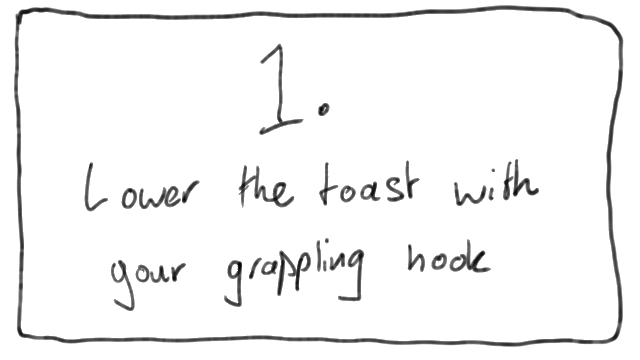 1.
Lower the toast with
your grappling hook